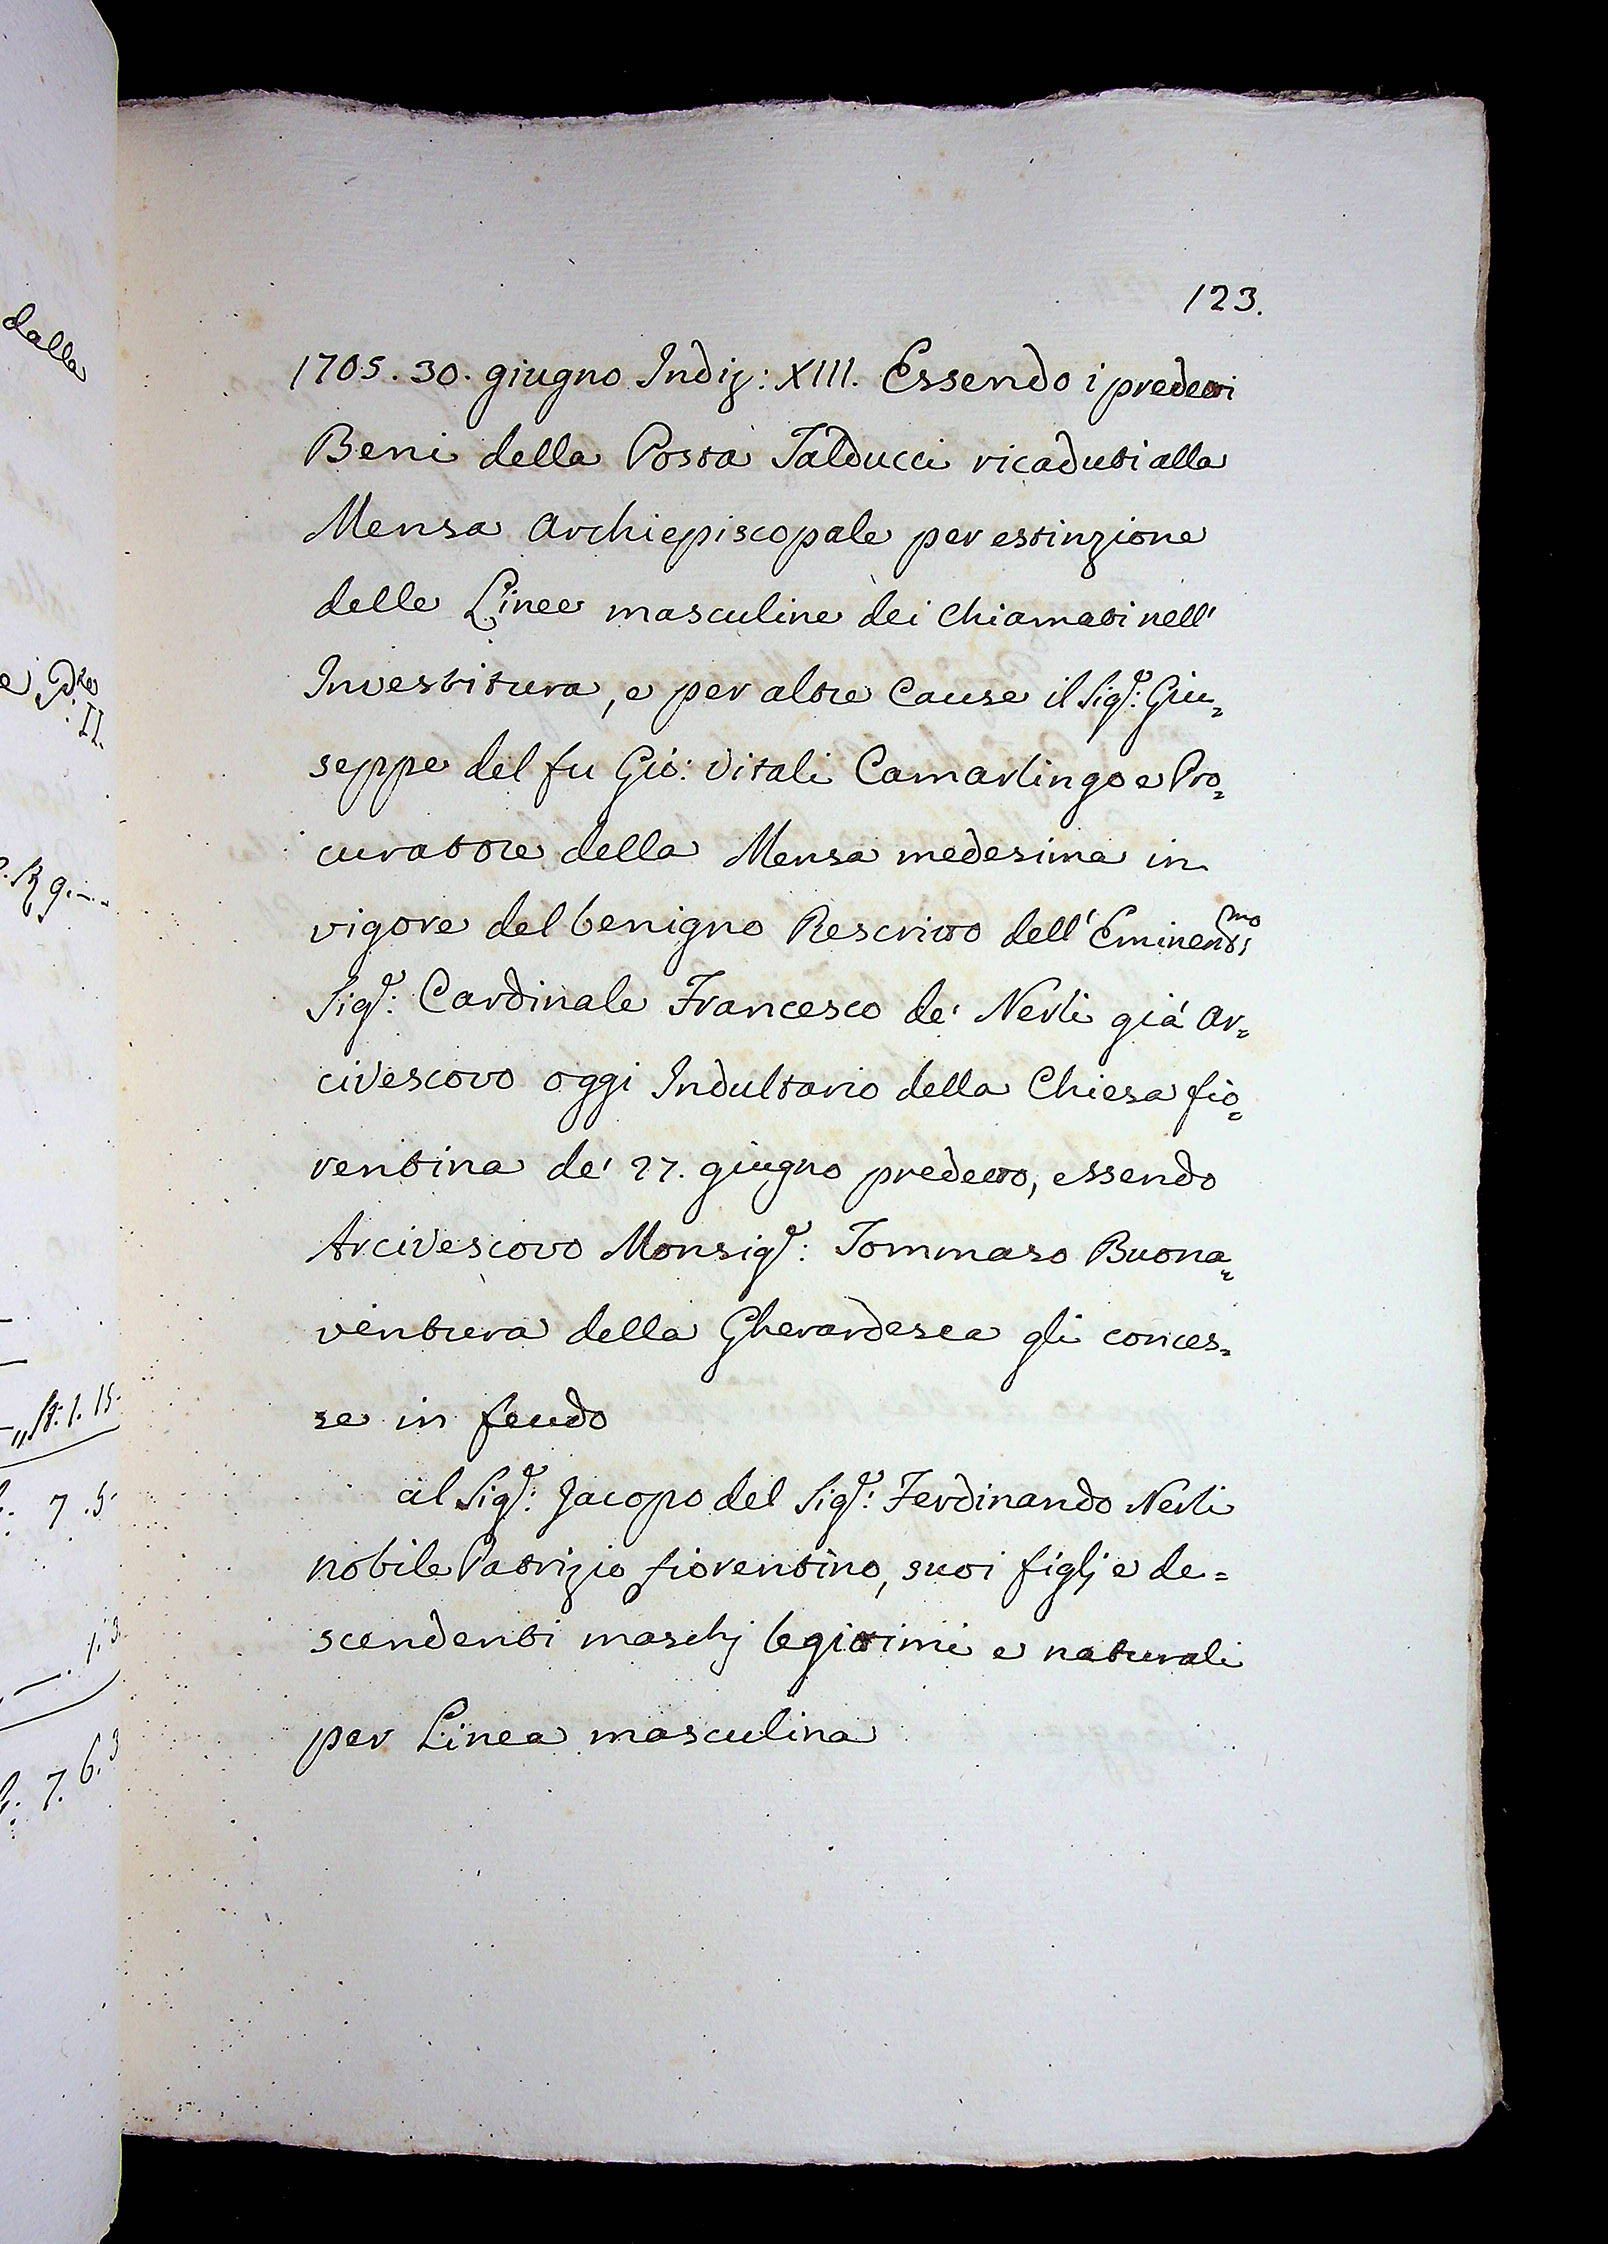 dalla
e Pre
II.
R 9.--
„ St. 1. 15.
7. 5.
1. 3
7. 6. 3
123.
1705. 30. giugno Indiz: XIII. Essendo i predetti
Beni della Posta Talducci ricaduti alla
Mensa Archiepiscopale per estinzione
delle Linee masculine dei Chiamati nell'
Investitura, e per altre Cause il Sigr: Giu=
seppe del fu Gio: Vitali Camarlingo e Pro=
curatore della Mensa medesima in
vigore del benigno Rescritto dell' Eminentismo
Sigr: Cardinale Francesco de' Nerli già Ar=
civescovo oggi Indultario della Chiesa fio=
rentina de' 27. giugno predetto, essendo
Arcivescovo Monsigr: Tommaso Buona=
ventura della Gherardesca gli conces=
se in feudo
al Sigr: Jacopo del Sigr: Ferdinando Nerli
nobile Patrizio fiorentino, suoi figlj e de=
scendenti maschj legittimi e naturali
per Linea masculina